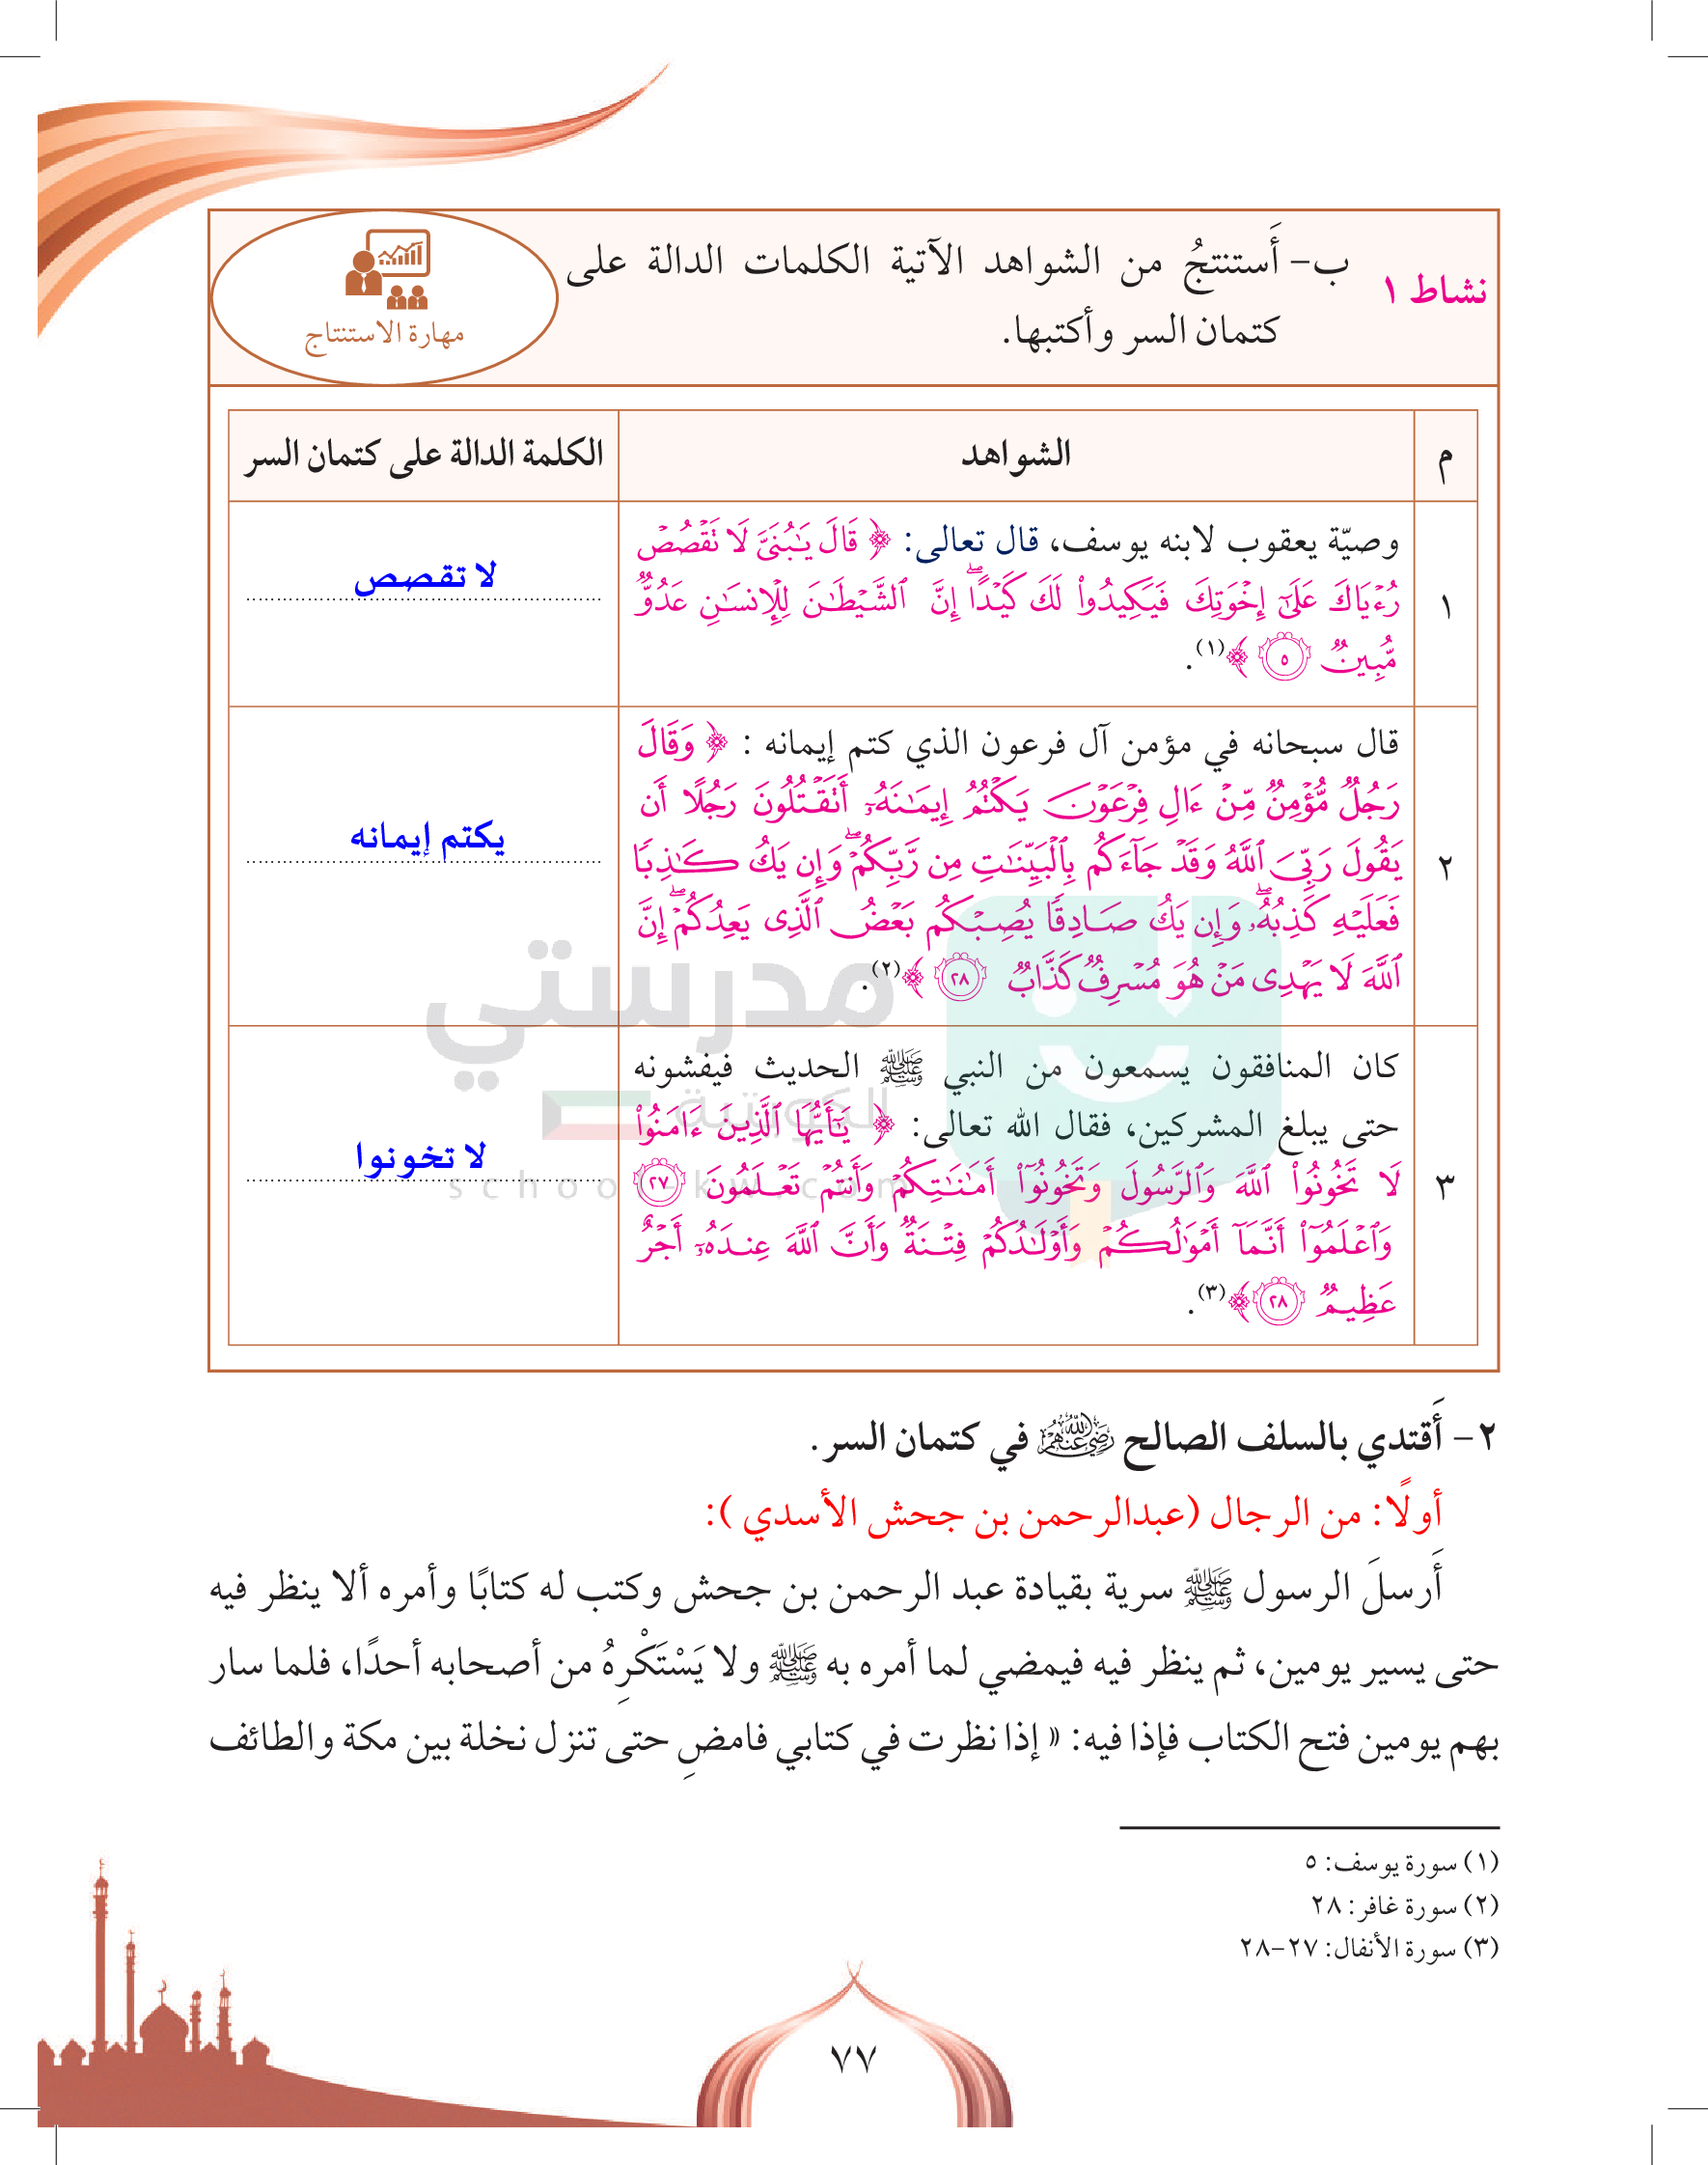 نشاط ١
ب- أَستنتجُ من الشواهد الآتية الكلمات الدالة على
كتمان السر وأكتبها.
مهارة الاستنتاج
م
الشواهد
الكلمة الدالة على كتمان السر
١
وصيّة يعقوب لابنه يوسف، قال تعالى: ﴿ قَالَ يَـٰبُنَىَّ لَا تَقْصُصْ
رُءْيَاكَ عَلَىٰٓ إِخْوَتِكَ فَيَكِيدُوا۟ لَكَ كَيْدًا ۖ إِنَّ ٱلشَّيْطَـٰنَ لِلْإِنسَـٰنِ عَدُوٌّ
مُّبِينٌ ٥ ﴾(١).
لا تقصص
٢
قال سبحانه في مؤمن آل فرعون الذي كتم إيمانه : ﴿ وَقَالَ
رَجُلٌ مُّؤْمِنٌ مِّنْ ءَالِ فِرْعَوْنَ يَكْتُمُ إِيمَـٰنَهُۥٓ أَتَقْتُلُونَ رَجُلًا أَن
يَقُولَ رَبِّىَ ٱللَّهُ وَقَدْ جَآءَكُم بِٱلْبَيِّنَـٰتِ مِن رَّبِّكُمْ ۖ وَإِن يَكُ كَـٰذِبًا
فَعَلَيْهِ كَذِبُهُۥ ۖ وَإِن يَكُ صَادِقًا يُصِبْكُم بَعْضُ ٱلَّذِى يَعِدُكُمْ ۖ إِنَّ
ٱللَّهَ لَا يَهْدِى مَنْ هُوَ مُسْرِفٌ كَذَّابٌ ٢٨ ﴾(٢).
يكتم إيمانه
٣
كان المنافقون يسمعون من النبي ﷺ الحديث فيفشونه
حتى يبلغ المشركين، فقال الله تعالى: ﴿ يَـٰٓأَيُّهَا ٱلَّذِينَ ءَامَنُوا۟
لَا تَخُونُوا۟ ٱللَّهَ وَٱلرَّسُولَ وَتَخُونُوٓا۟ أَمَـٰنَـٰتِكُمْ وَأَنتُمْ تَعْلَمُونَ ٢٧
وَٱعْلَمُوٓا۟ أَنَّمَآ أَمْوَٰلُكُمْ وَأَوْلَـٰدُكُمْ فِتْنَةٌ وَأَنَّ ٱللَّهَ عِندَهُۥٓ أَجْرٌ
عَظِيمٌ ٢٨ ﴾(٣).
لا تخونوا
مدرستي
الكويتية
٢- أَقتدي بالسلف الصالح رضي الله عنهم في كتمان السر.
أولًا: من الرجال (عبدالرحمن بن جحش الأسدي ):
أَرسلَ الرسول ﷺ سرية بقيادة عبد الرحمن بن جحش وكتب له كتابًا وأمره ألا ينظر فيه
حتى يسير يومين، ثم ينظر فيه فيمضي لما أمره به ﷺ ولا يَسْتَكْرِهُ من أصحابه أحدًا، فلما سار
بهم يومين فتح الكتاب فإذا فيه: « إذا نظرت في كتابي فامضِ حتى تنزل نخلة بين مكة والطائف
(١) سورة يوسف: ٥
(٢) سورة غافر: ٢٨
(٣) سورة الأنفال: ٢٧-٢٨
٧٧